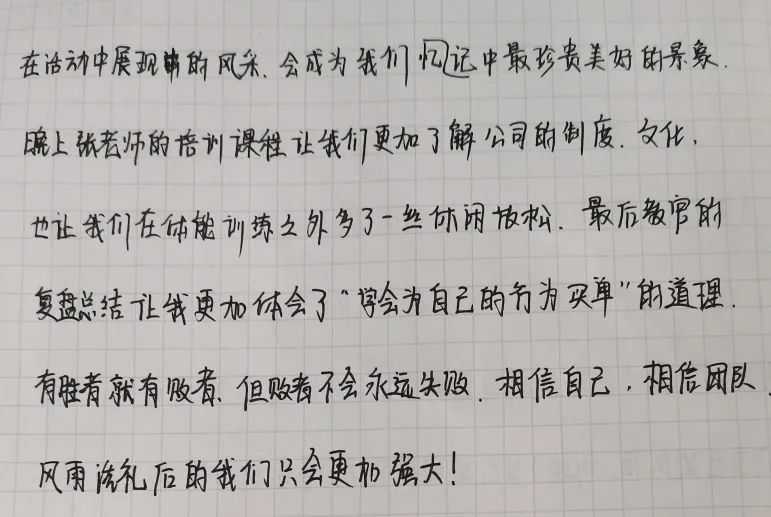 在活动中展现的风采.会成为我们忆记中最珍贵美好的景象.
晚上张老师的培训课程让我们更加了解公司的制度.文化,
也让我们在体能训练之外多了一丝休闲放松.最后教官的
复盘总结让我更加体会了“学会为自己的行为买单”的道理.
有胜者就有败者.但败者不会永远失败.相信自己,相信团队
风雨洗礼后的我们只会更加强大!